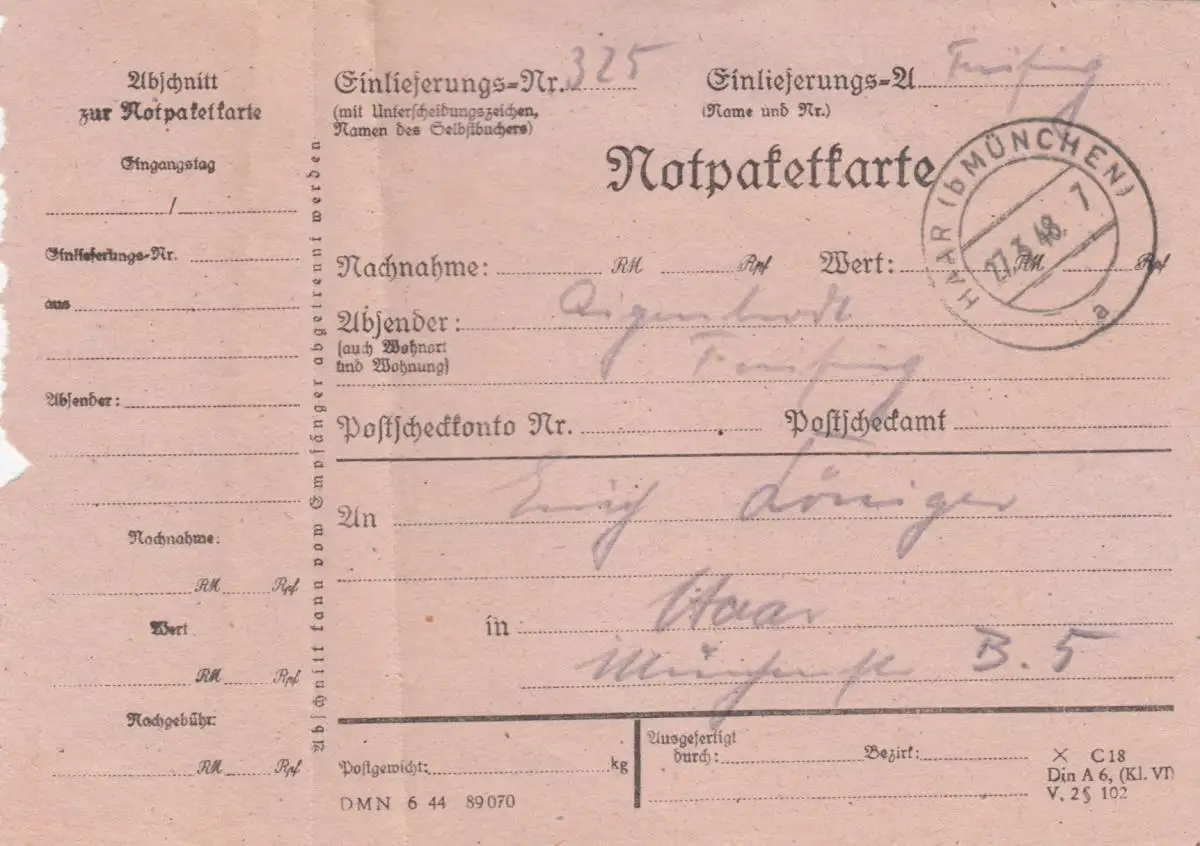 Abschnitt
zur Notpaketkarte
Eingangstag
/
Einlieferungs-Nr.
aus
Absender:
Nachnahme:
RM Rpf
Wert
RM Rpf
Nachgebühr:
RM Rpf
Abschnitt kann vom Empfänger abgetrennt werden
Einlieferungs-Nr. 325
(mit Unterscheidungszeichen,
Namen des Selbstbuchers)
Einlieferungs-A
(Name und Nr.)
Notpaketkarte
HAAR (b MÜNCHEN)
27.3.48. 7
a
Nachnahme: RM Rpf Wert: RM Rpf
Absender:
(auch Wohnort
und Wohnung)
Postscheckkonto Nr. Postscheckamt
An Erich
in Haar
B. 5
Postgewicht: kg
DMN 6 44 89070
Ausgefertigt
durch: Bezirk:
X C 18
Din A 6, (Kl. VI)
V, 2 § 102